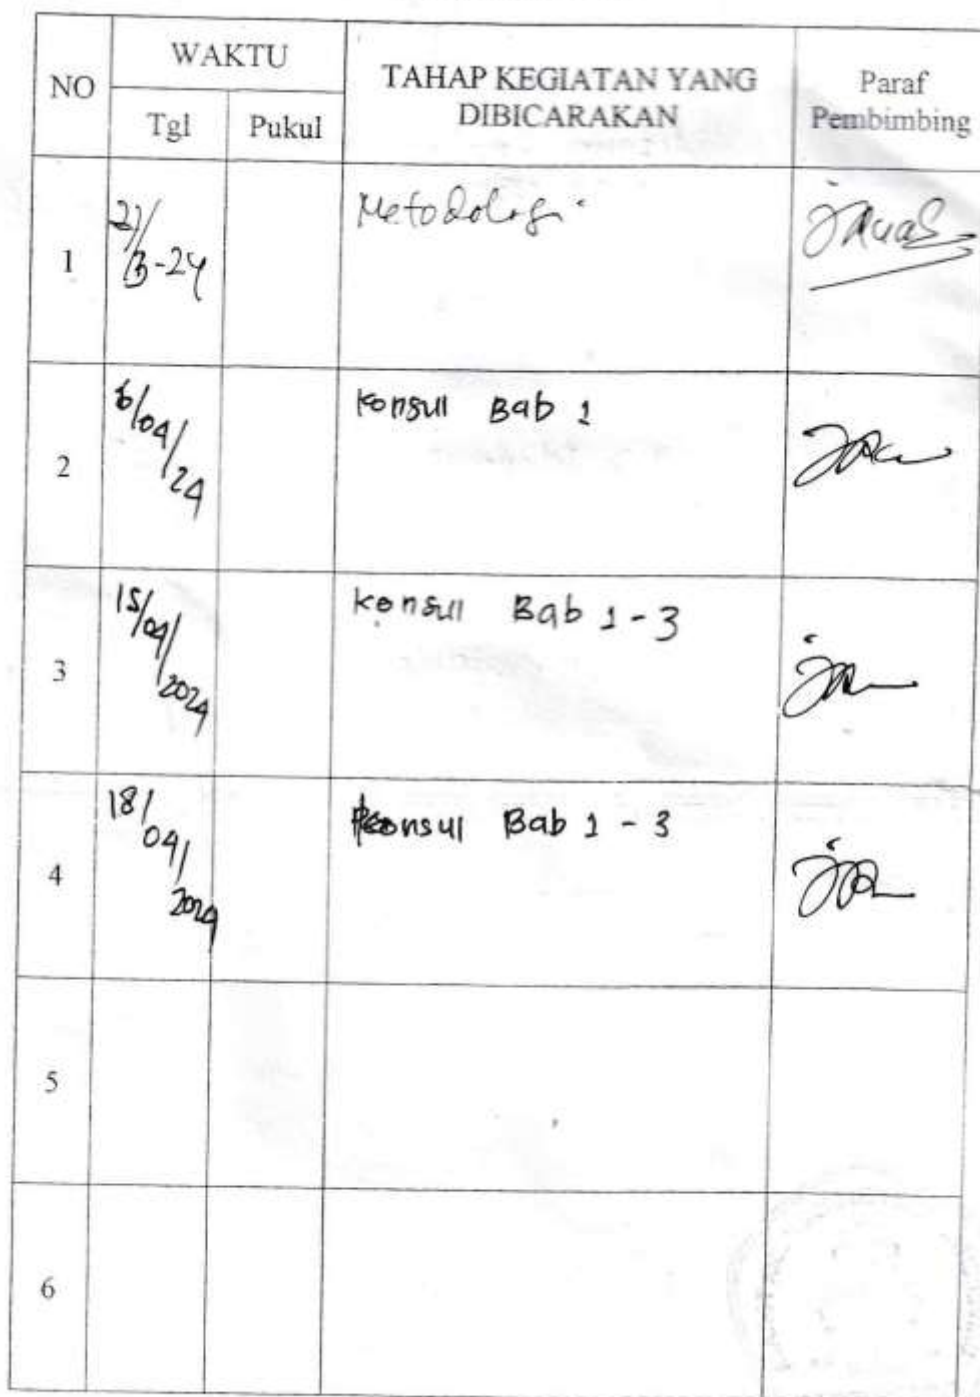 NO WAKTU TAHAP KEGIATAN YANG DIBICARAKAN Paraf Pembimbing
Tgl Pukul
1 Metodologi
2 6/04/24 Konsul Bab 1
3 15/04/2024 Konsul Bab 1-3
4 18/04/2024 Konsul Bab 1-3
5
6